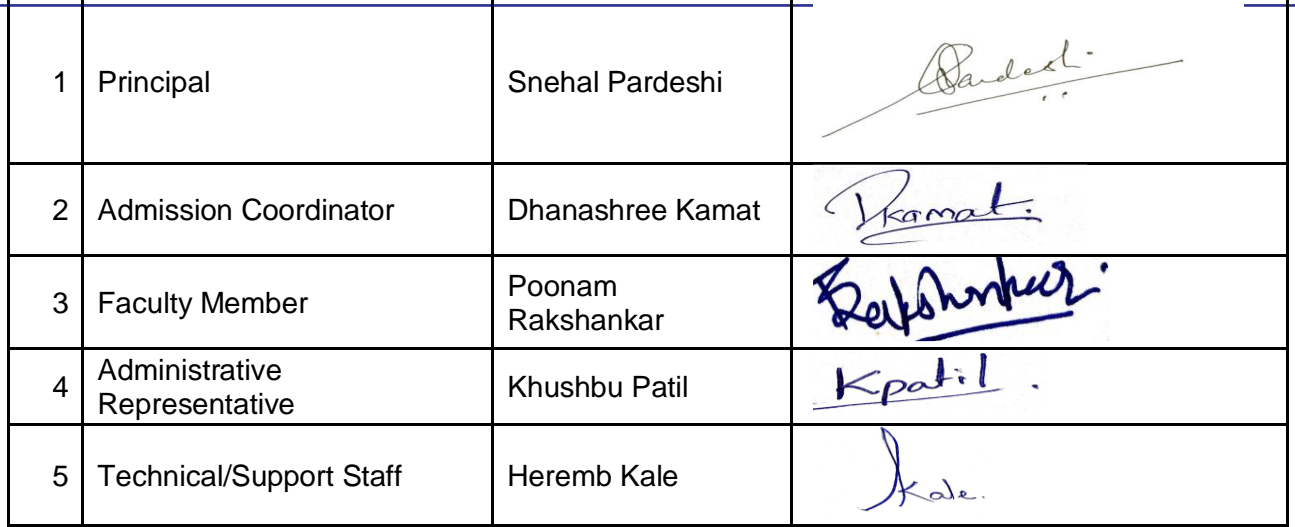 1 Principal Snehal Pardeshi Pardeshi
2 Admission Coordinator Dhanashree Kamat Dkamat.
3 Faculty Member Poonam
Rakshankar Rakshankar
4 Administrative
Representative Khushbu Patil Kpatil.
5 Technical/Support Staff Heremb Kale Kale.